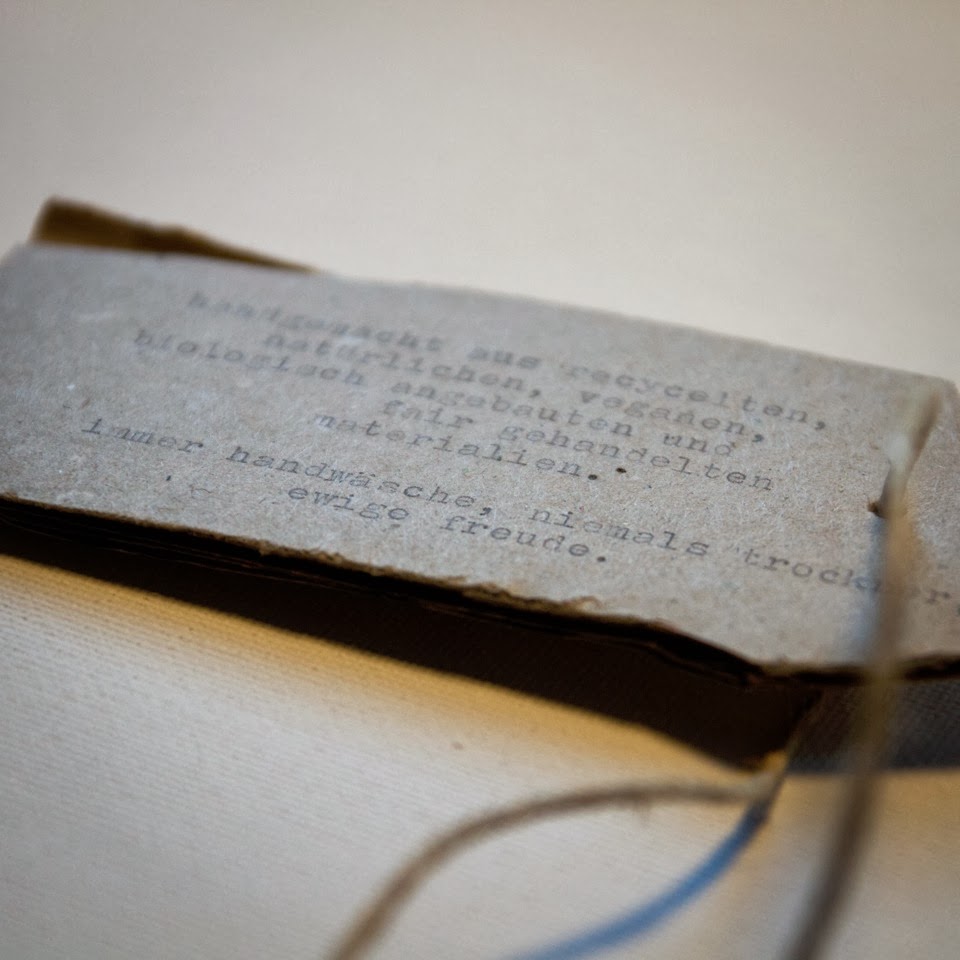 handgemacht aus recycelten,
natürlichen, veganen,
biologisch angebauten und
fair gehandelten
materialien.
immer handwäsche, niemals
ewige freude.